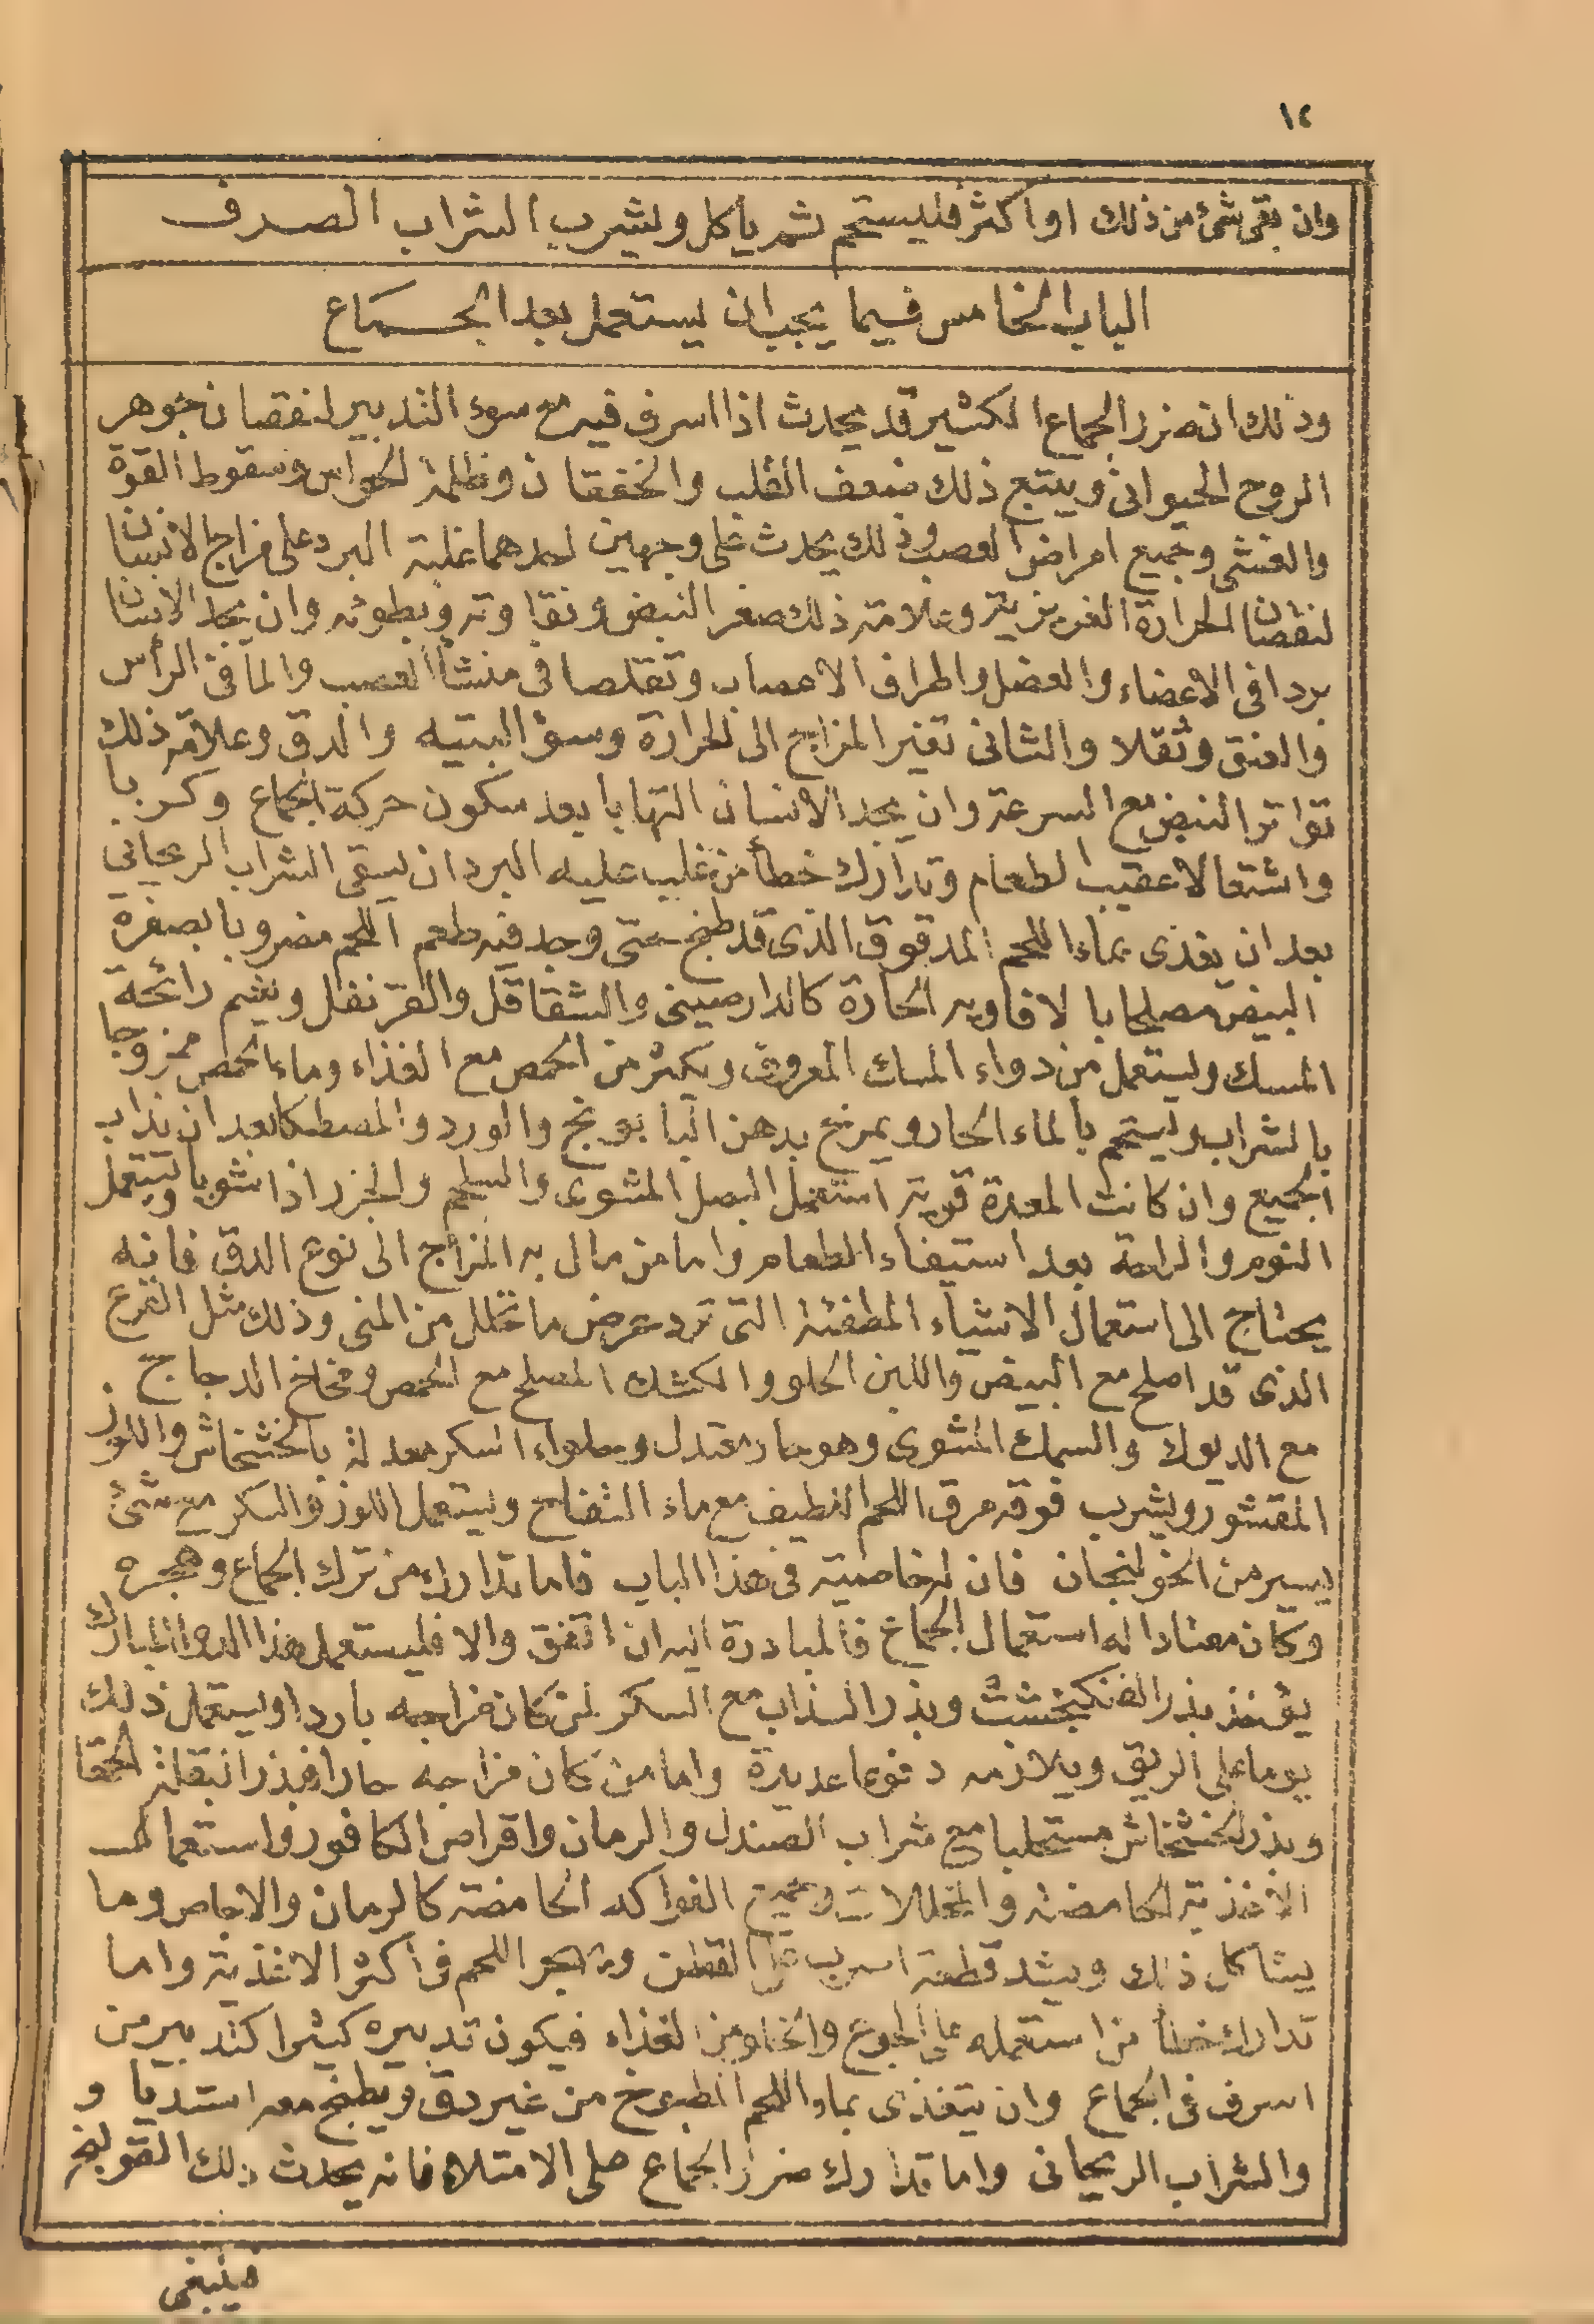 ١٢
وان بقى شئ من ذلك او اكثر فليستحم ثم ياكل ويشرب الشراب الصرف
الباب الخامس فيما يجب ان يستعمل بعد الجماع
وذلك ان ضرر الجماع الكثير قد يحدث اذا اسرف فيه مع سوء التدبير لنقصان جوهر
الروح الحيوانى ويتبع ذلك ضعف القلب والخفقان وظلمة الحواس وسقوط القوة
والغشى وجميع امراض العصب وذلك يحدث على وجهين احدهما غلبة البرد على مزاج الانسان
لنقصان الحرارة الغريزية وعلامة ذلك صغر النبض ونقاوته وبطوئه وان يجد الانسان
بردا فى الاعضاء والعضل واطراف الاعصاب وتقلصا فى منشأ العصب والما فى الرأس
والعنق وثقلا والثانى تغير المزاج الى الحرارة وسؤ البتيه والدق وعلامة ذلك
تواتر النبض مع السرعة وان يجد الانسان التهابا بعد سكون حركة الجماع وكربا
واشتعالا عقيب الطعام وتدارك خطأ من غلب عليه البرد ان يسقى الشراب الريحانى
بعد ان يغذى بماء اللحم المدقوق الذى قد طبخ حتى وجد فيه طعم اللحم مضروبا بصفرة
البيض مصلحا با لافاويه الحارة كالدارصينى والشقاقل والقرنفل ويشم رائحة
المسك وليستعمل من دواء المسك المعروف ويكثر من الحمص مع الغذاء وماء الحمص ممزوجا
بالشراب وليستحم بالماء الحار ويمرخ بدهن البابونج والورد والمصطكا بعد ان يذاب
الجميع وان كانت المعدة قوية استعمل البصل المشوى والسلجم والجزر اذا شويا ويستعمل
النوم والراحة بعد استيفاء الطعام واما من مال به المزاج الى نوع الدق فانه
يحتاج الى استعمال الاشياء المطفئة التى ترد عوض ما تحلل من المنى وذلك مثل القرع
الذى قد اصلح مع البيض واللبن الحلو والكشك المصلح مع الحمص ومخاخ الدجاج
مع الديوك والسمك المشوى وهو حار معتدل وحلواء السكر معدلة بالخشخاش واللوز
المقشور ويشرب فوقه مرق اللحم اللطيف مع ماء التفاح ويستعمل اللوز والسكر مع شئ
يسير من الخولنجان فان له خاصية فى هذا الباب فاما تدارك من ترك الجماع وهجره
وكان معتادا له استعمال الجماع فالمبادرة اليه ان اتفق والا فليستعمل هذا الدواء المبارك
يؤخذ بذر الفنكنجشت وبذر السذاب مع السكر لمن كان مزاجه باردا ويستعمل ذلك
يوما على الريق ويلازمه دفوعا عديدة واما من كان مزاجه حارا فبذر البقلة الحمقا
وبذر الخشخاش مستحلبا مع شراب الصندل والرمان واقراص الكافور واستعمال
الاغذية الحامضة والمخللات وجميع الفواكه الحامضة كالرمان والاجاص وما
يشاكل ذلك ويشد قطعة اسرب على القطن ويهجر اللحم فى اكثر الاغذية واما
تدارك خطأ من استعمله على الجوع والخلو من الغذاء فيكون تدبيره كثيرا كتدبير من
اسرف فى الجماع وان يتغذى بماء اللحم المطبوخ من غير دق ويطبخ معه و
والشراب الريحانى واما تدارك ضرر الجماع على الامتلاء فانه يحدث ذلك القولنج
فينبغى